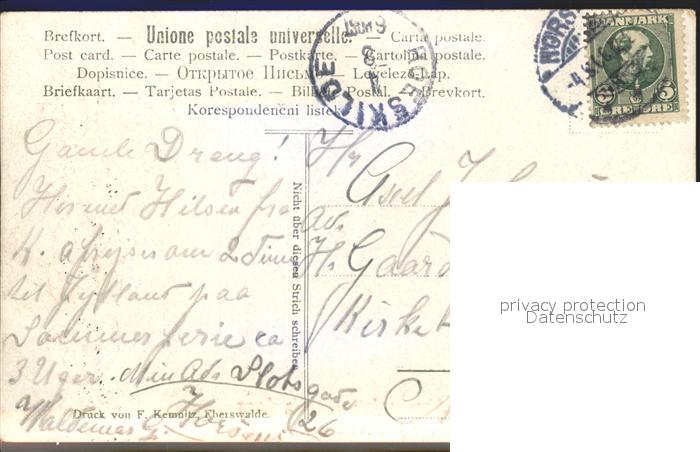 Brefkort. — Unione postale universelle. — Carta postale.
Post card. — Carte postale. — Postkarte. — Cartolina postale.
Dopisnice. — Открытое Письмо — Levelező-Lap.
Briefkaart. — Tarjetas Postale. — Bilhete Postal. — Brevkort.
Korespondenční listek.
ROESKILDE
HORS
DANMARK
5 ØRE 5
Gamle Dreng!
Hermed Hilsen fra
K. afrejser om 2 Timer
til Jylland paa
Sommerferie ca
3 Uger. Min Ads Slotsgade
Waldemar G. 26
Nicht über diesen Strich schreiben
Hr
Adr.
Hr. Gaard
Kirke
privacy protection
Datenschutz
Druck von F. Kemnitz, Eberswalde.